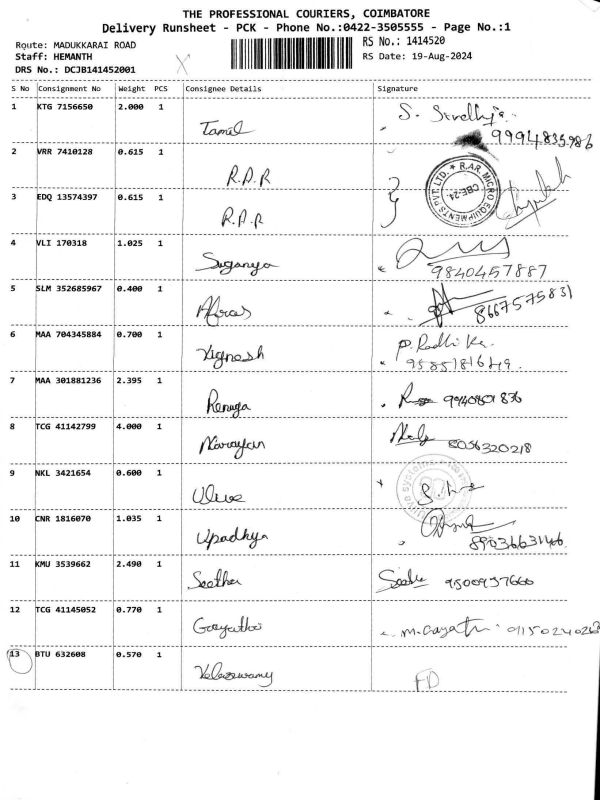 THE PROFESSIONAL COURIERS, COIMBATORE
Delivery Runsheet - PCK - Phone No.:0422-3505555 - Page No.:1
Route: MADUKKARAI ROAD
Staff: HEMANTH
DRS No.: DCJB141452001
RS No.: 1414520
RS Date: 19-Aug-2024
S No Consignment No Weight PCS Consignee Details Signature
1 KTG 7156650 2.000 1 Tamil
9994835986
2 VRR 7410128 0.615 1 R.A.R
R.A.R. MICRO EQUIPMENTS PVT. LTD. ★ CBE-24
3 EDQ 13574397 0.615 1 R.A.R
4 VLI 170318 1.025 1 Suganya
9840457887
5 SLM 352685967 0.400 1 Afras
8667575831
6 MAA 704345884 0.700 1 Vignesh P. Radhika
7 MAA 301881236 2.395 1 Renuga 9940801836
8 TCG 41142799 4.000 1 Narayan 8056320218
9 NKL 3421654 0.600 1
10 CNR 1816070 1.035 1 Upadhya
11 KMU 3539662 2.490 1 Seetha 9500957666
12 TCG 41145052 0.770 1 Gayathri M. Gayathri
13 BTU 632608 0.570 1 FD